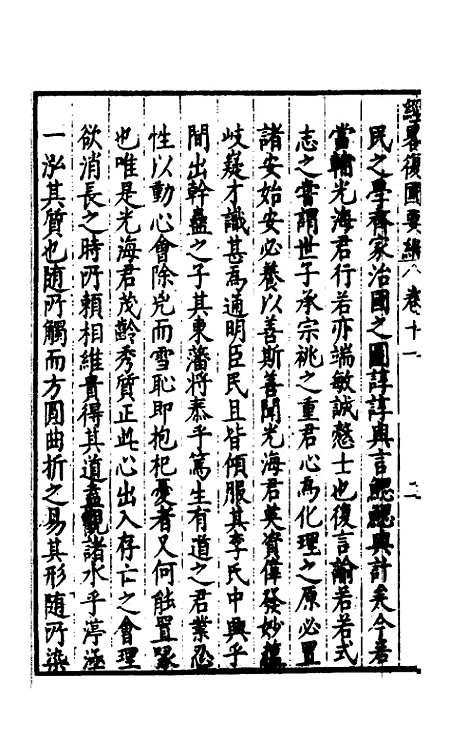 經略復國要編 卷十一 二
民之學齊家治國之圖諄諄與言鰓鰓與計矣今若
當輔光海君行若亦端敏誠慤士也復言諭若若式
志之嘗謂世子承宗祧之重君心爲化理之原必置
諸安始安必養以善斯善聞光海君英資偉發妙蘊
岐疑才識甚爲通明臣民且皆傾服其李氏中興乎
間出幹蠱之子其東藩將泰乎篤生有道之君業忍
性以動心會除兇而雪恥即抱杞憂者又何能置喙
也唯是光海君茂齡秀質正此心出入存亡之會理
欲消長之時所賴相維貴得其道盍觀諸水乎渟涵
一泓其質也隨所觸而方圓曲折之易其形隨所染